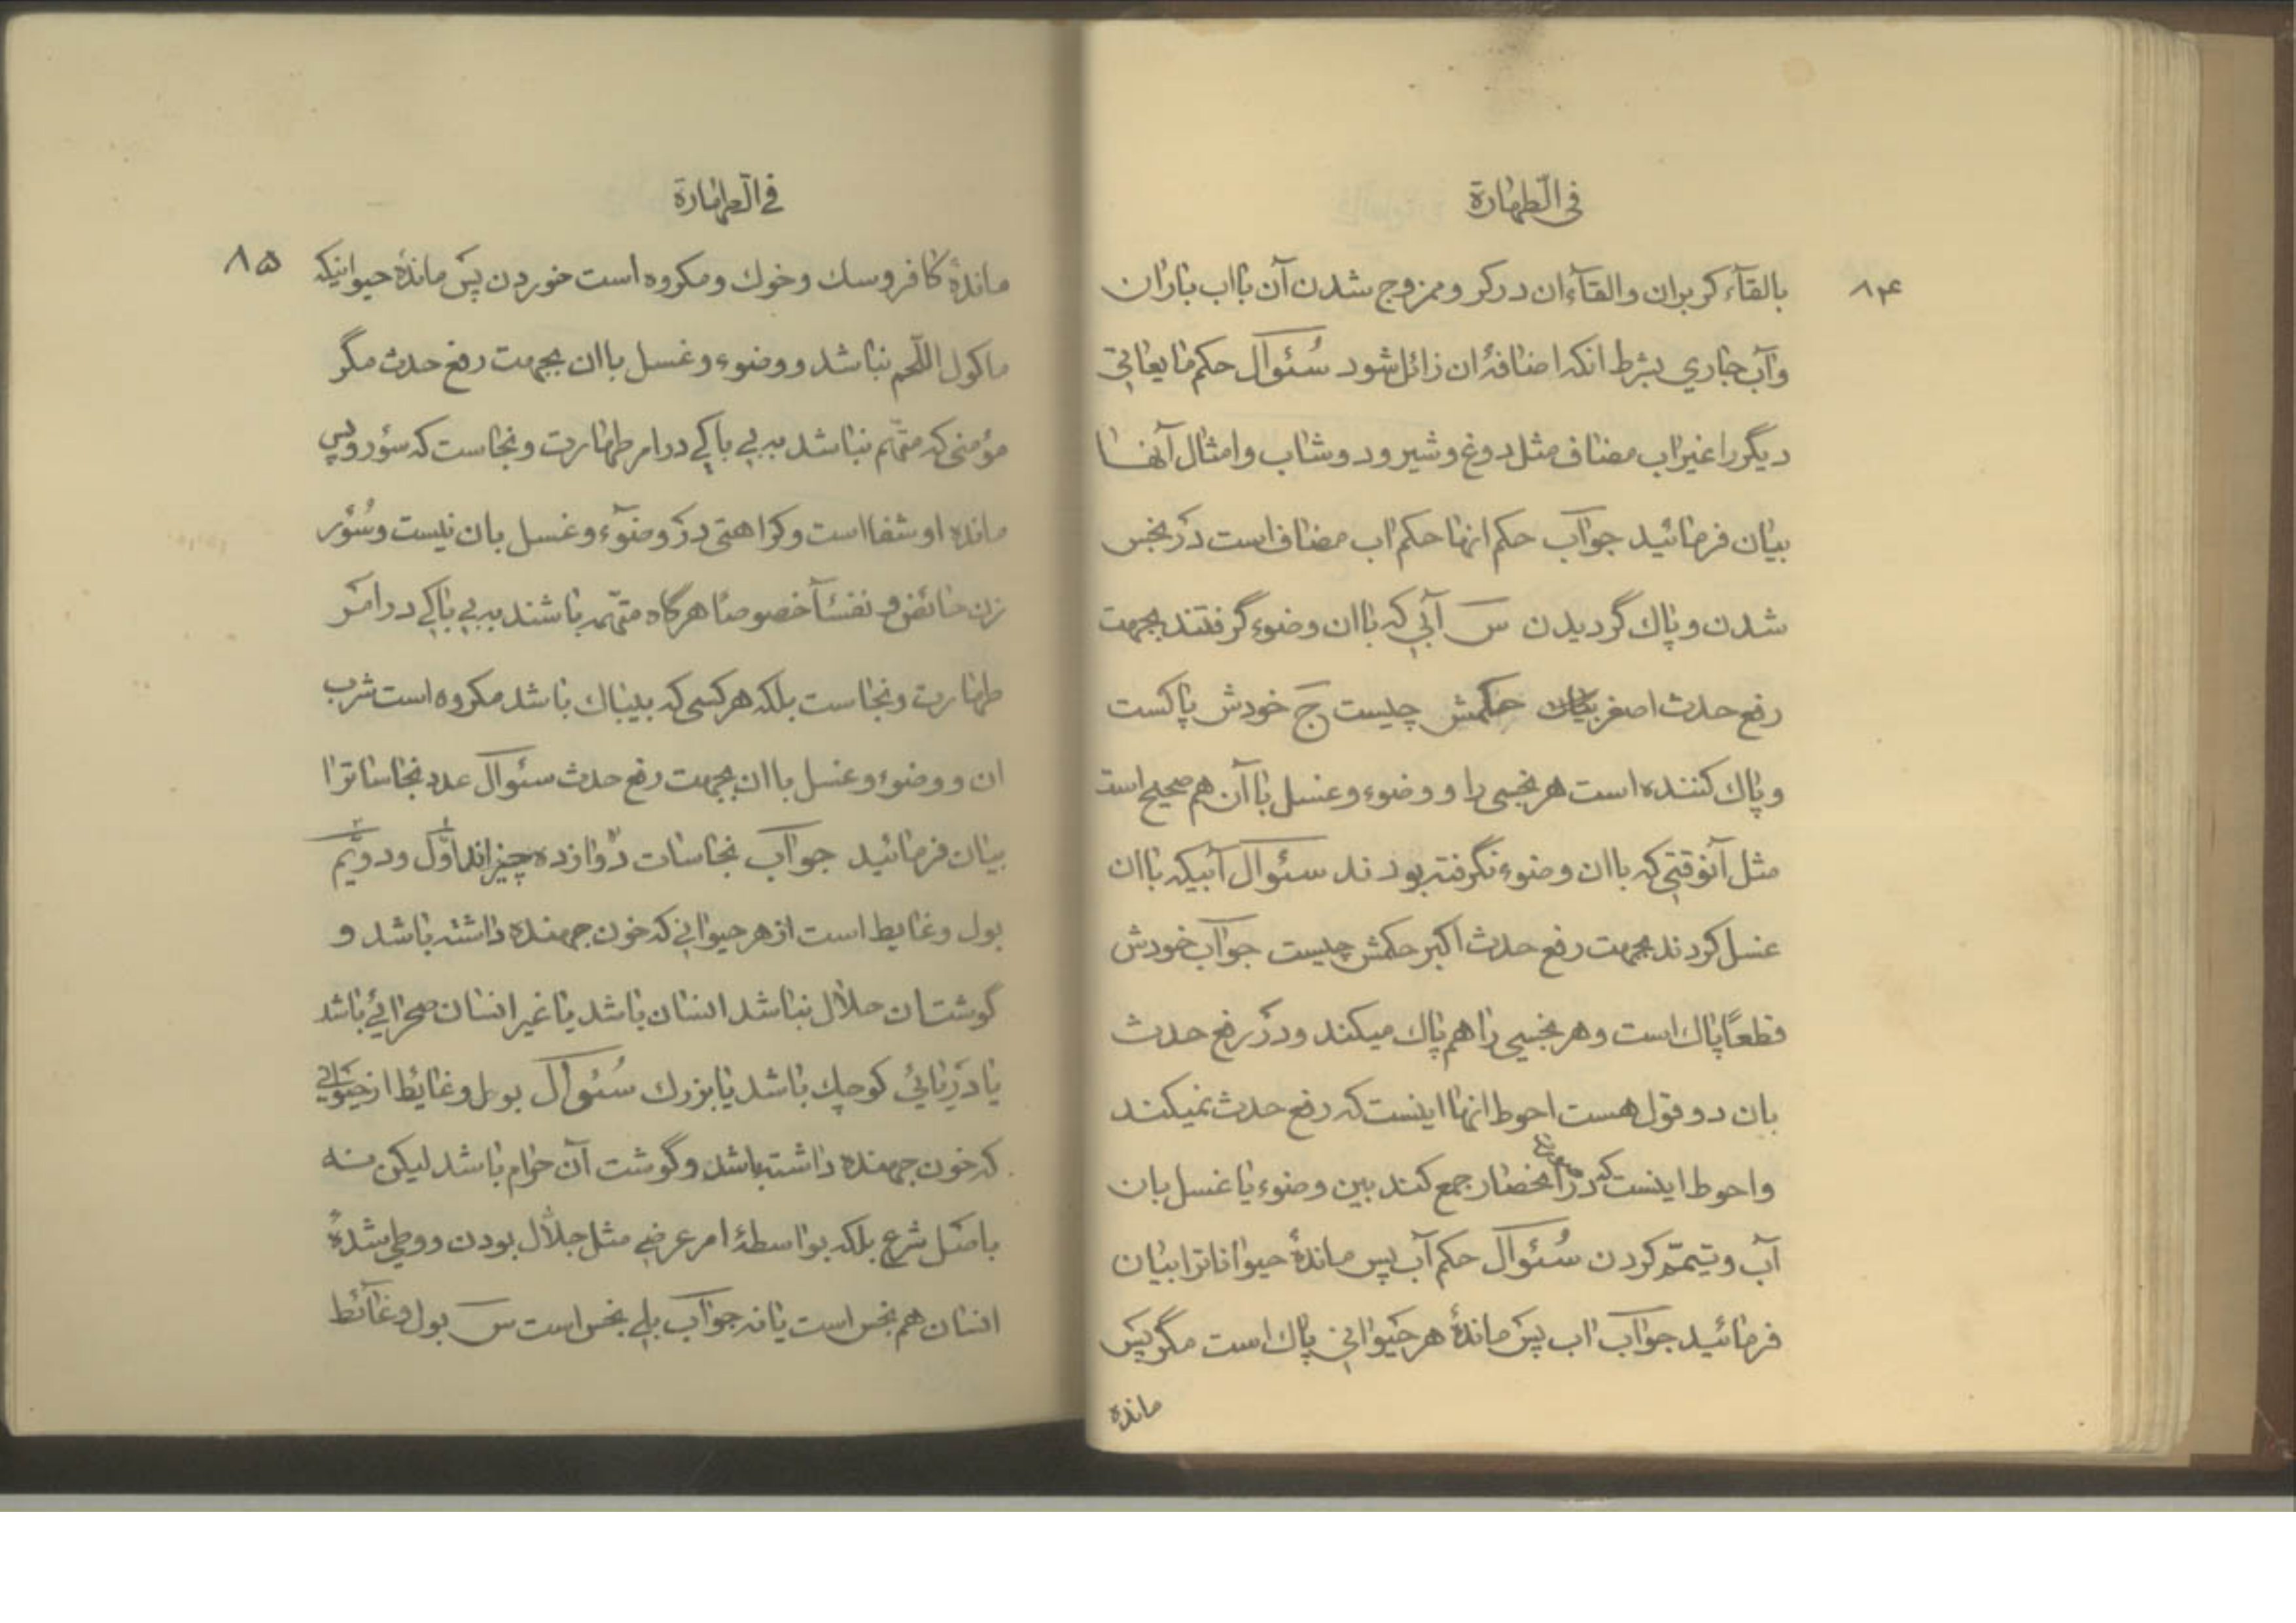 فی الطهارة
۸۴
بالقآء کر بران و القآء ان در کر و ممزوج شدن آن بااب باران
و آب جاری بشرط انکه اضافۀ ان زائل شود سُئوال حکم مایعاتی
دیگر را غیر اب مضاف مثل دوغ و شیر و دوشاب و امثال آنها
بیان فرمائید جوآب حکم انها حکم اب مضاف است در نجس
شدن و پاك گردیدن س آبی که باان وضوء گرفتند بجهت
رفع حدث اصغر حکمش چیست ج خودش پاکست
و پاك کننده است هر نجسی را و وضوء و غسل باآن هم صحیح است
مثل آنوقتی که باان وضوء نگرفته بودند سئوال آبیکه باان
غسل کردند بجهت رفع حدث اکبر حکمش چیست جوآب خودش
قطعًا پاك است و هر نجسی را هم پاك میکند و در رفع حدث
بان دو قول هست احوط انها اینست که رفع حدث نمیکند
و احوط اینست که در انحضار جمع کند بین وضوء یا غسل بان
آب و تیمّم کردن سُئوال حکم آب پس ماندۀ حیوانات را بیان
فرمائید جوآب اب پس ماندۀ هر حیوانی پاك است مگر پس
ماندۀ
فی الطهارة
۸۵
ماندۀ کافر و سك و خوك و مکروه است خوردن پس ماندۀ حیوانیکه
ماکول اللّحم نباشد و وضوء و غسل باان بجهت رفع حدث مگر
مؤمنی که متّهم نباشد به بی باکی در امر طهارت و نجاست که سؤر و پس
ماندۀ او شفا است و کراهتی در وضوآء و غسل بان نیست و سُؤر
زن حائض و نفسآء خصوصًا هرگاه متّهمه باشند به بی باکی در امر
طهارت و نجاست بلکه هر کسی که بیباك باشد مکروه است شرب
ان و وضوء و غسل باان بجهت رفع حدث سئوال عدد نجاسات را
بیان فرمائید جوآب نجاسات دوازده چیزاند اوّل و دویّم
بول و غایط است از هر حیوانی که خون جهنده داشته باشد و
گوشت ان حلال نباشد انسان باشد یا غیر انسان صحرائی باشد
یا دریائی کوچك باشد یا بزرك سُئوال بول و غایط از حیوانی
که خون جهنده داشته باشد و گوشت آن حرام باشد لیکن نه
باصل شرع بلکه بواسطۀ امر عرضی مثل جلّال بودن و وطی شدۀ
انسان هم نجس است یا نه جوآب بلی نجس است س بول و غآئط